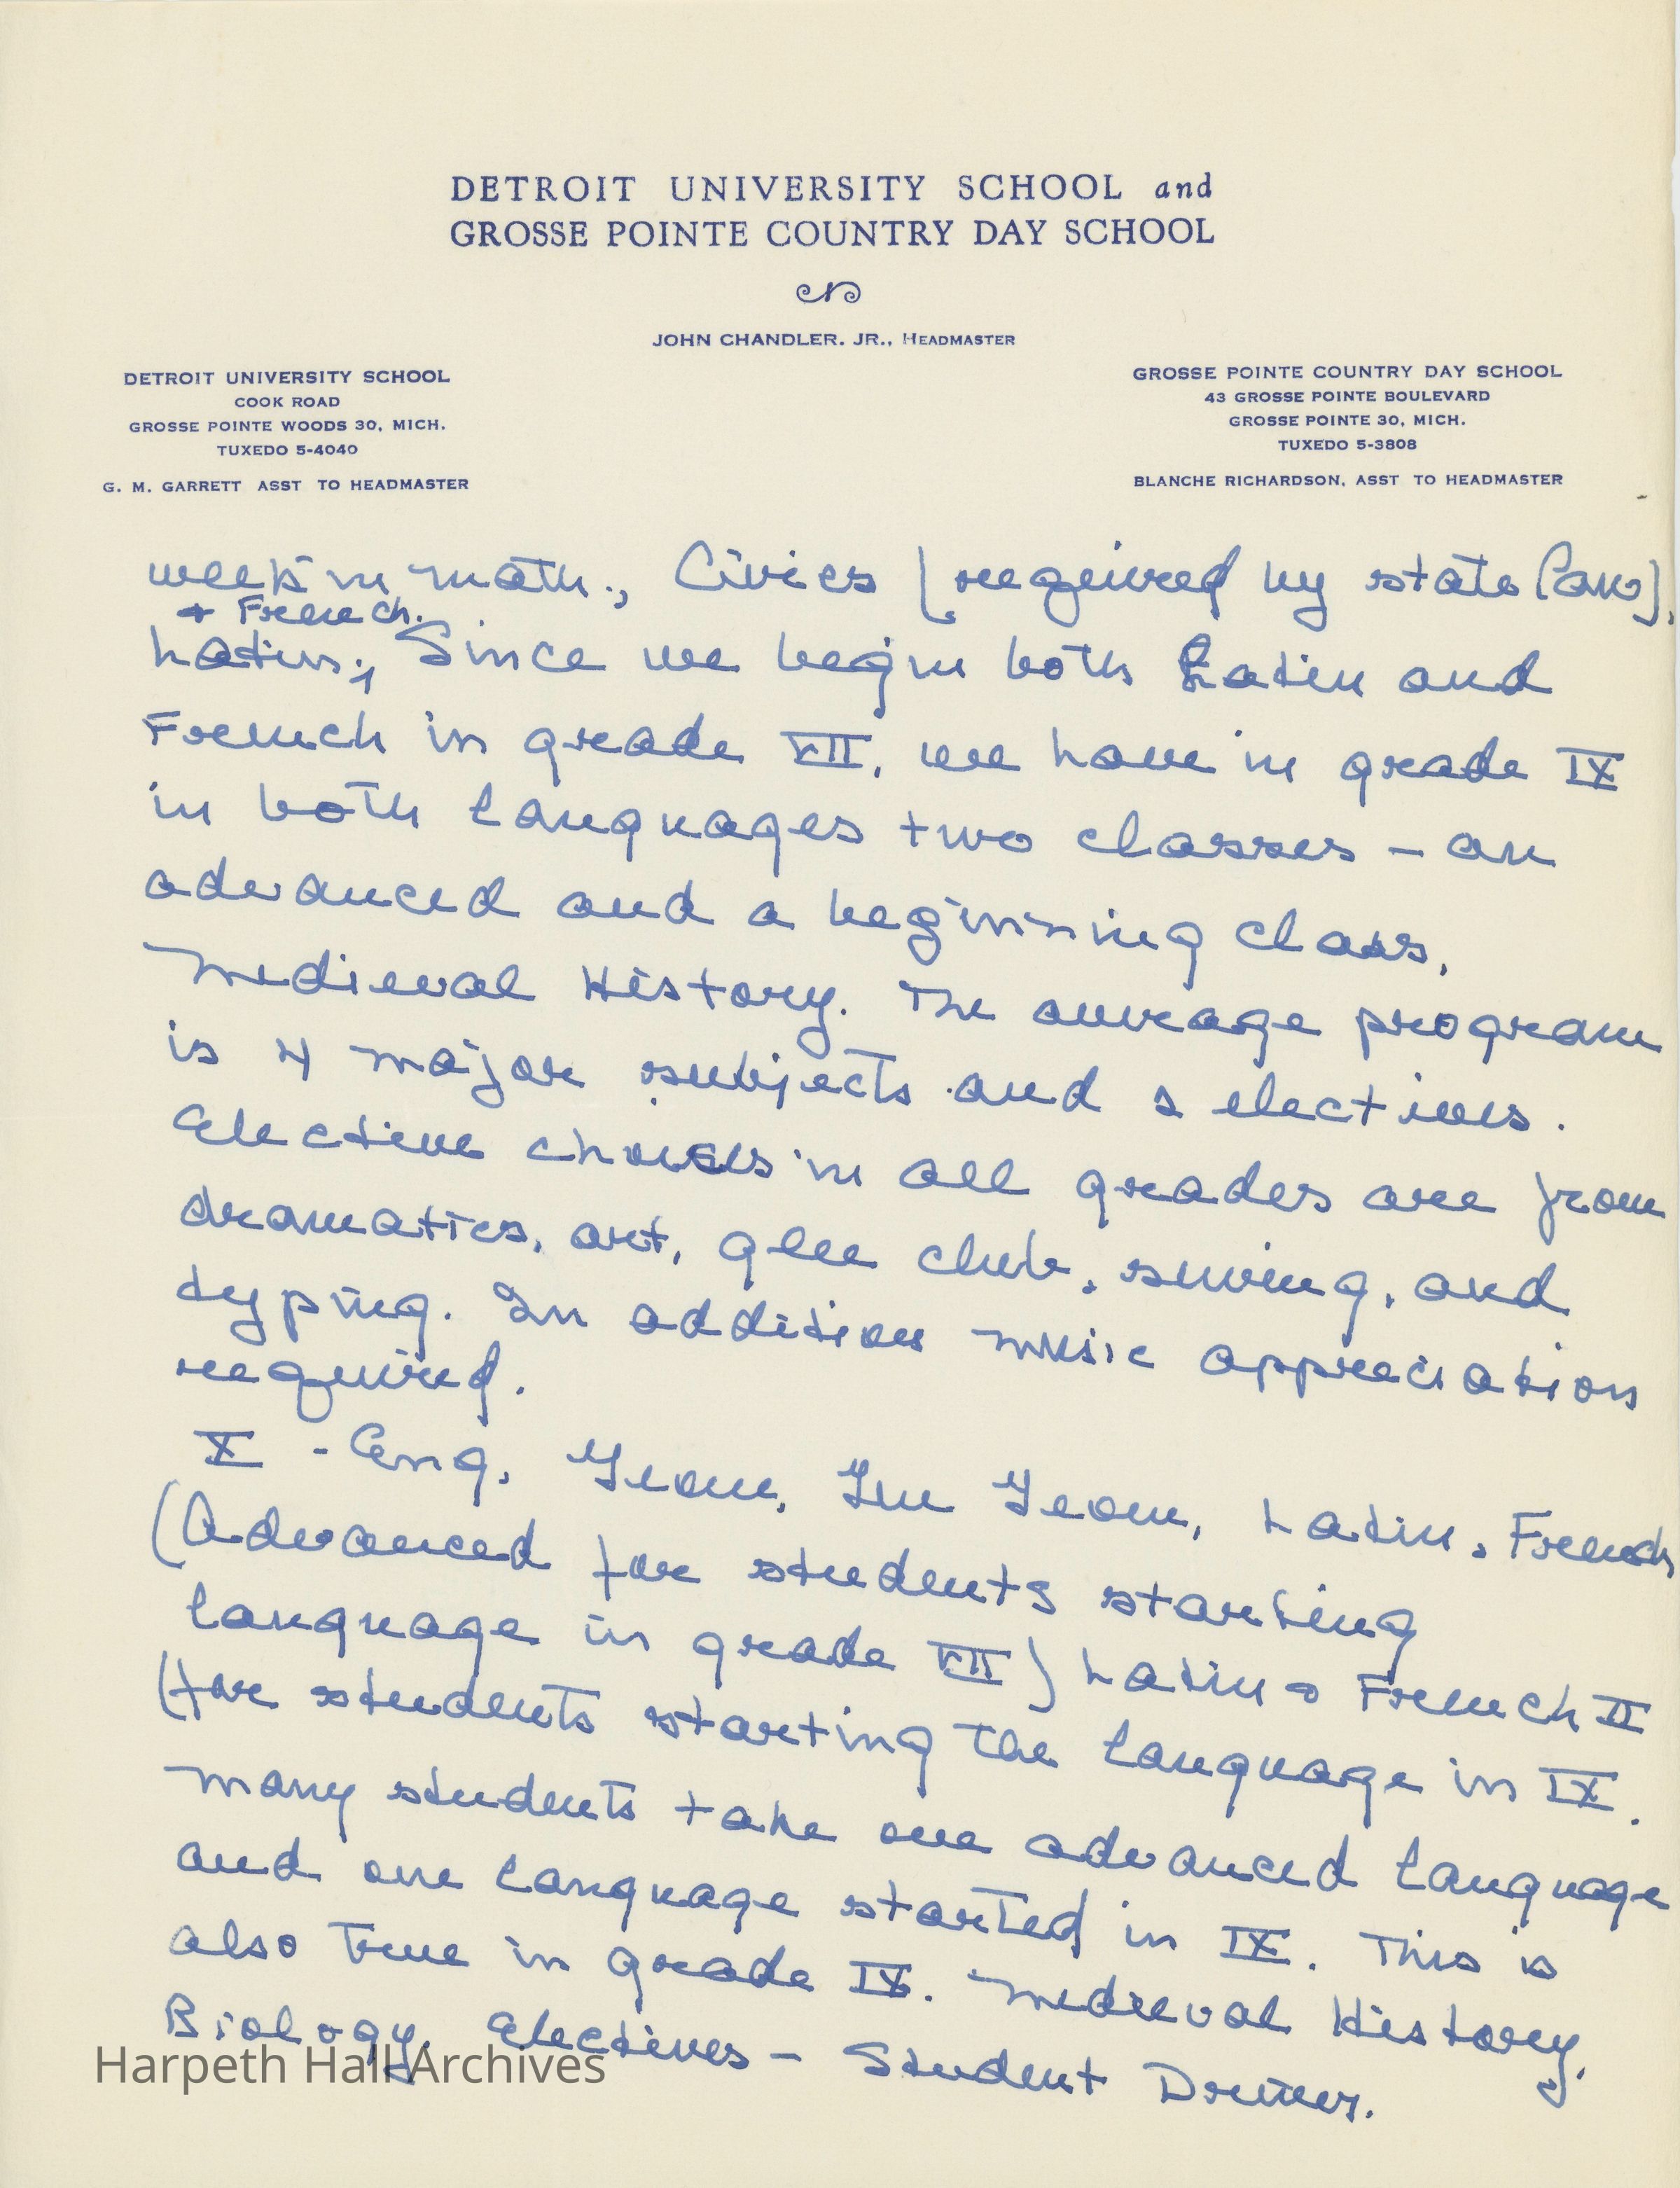 DETROIT UNIVERSITY SCHOOL and
GROSSE POINTE COUNTRY DAY SCHOOL
JOHN CHANDLER. JR., HEADMASTER
DETROIT UNIVERSITY SCHOOL
COOK ROAD
GROSSE POINTE WOODS 30, MICH.
TUXEDO 5-4040
G. M. GARRETT ASST TO HEADMASTER
GROSSE POINTE COUNTRY DAY SCHOOL
43 GROSSE POINTE BOULEVARD
GROSSE POINTE 30, MICH.
TUXEDO 5-3808
BLANCHE RICHARDSON, ASST TO HEADMASTER
week in math., Civics (required by state law),
+ French.
Latin, Since we begin both Latin and
French in grade VII, we have in grade IX
in both languages two classes – an
advanced and a beginning class,
Medieval History. The average program
is 4 major subjects and 2 electives.
Elective choices in all grades are from
dramatics, art, glee club, sewing, and
typing. In addition music appreciation
required.
X - Eng, Geom, Int Geom, Latin, French
(Advanced for students starting
language in grade VII) Latin & French II
(for students starting the language in IX.
Many students take one advanced language
and one language started in IX. This is
also true in grade IX. Medieval History,
Biology. Electives – Student Driver.
Harpeth Hall Archives